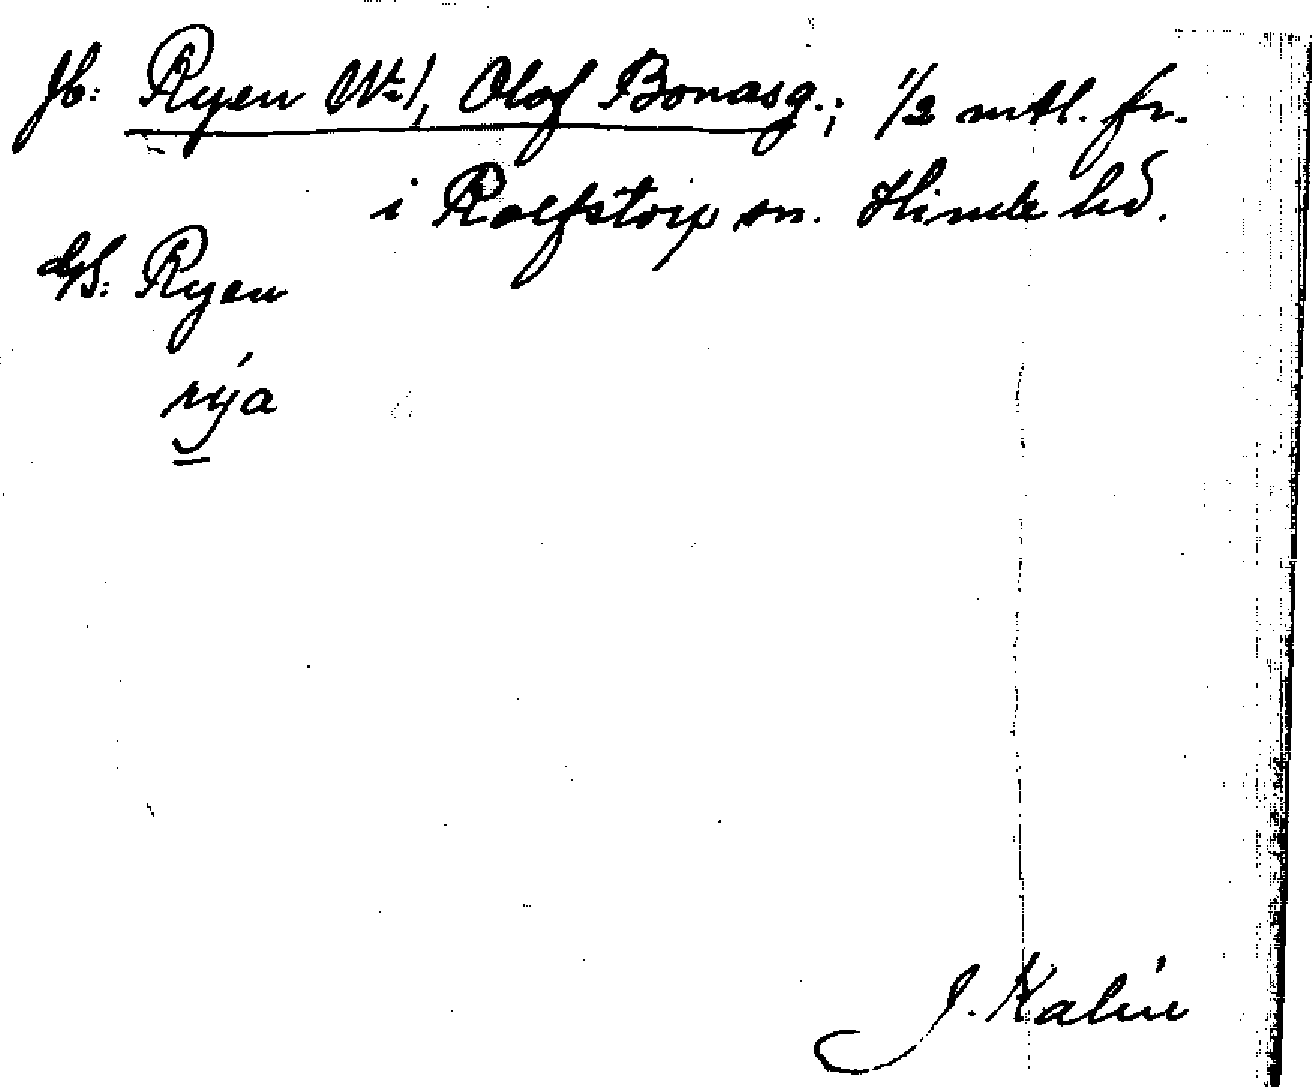 Jb: Ryen Nr 1, Olof Bonasg.; 1/2 mtl. fr.
i Rolfstorp sn. Himle hd.
GS: Ryen
rýa
J. Kalén